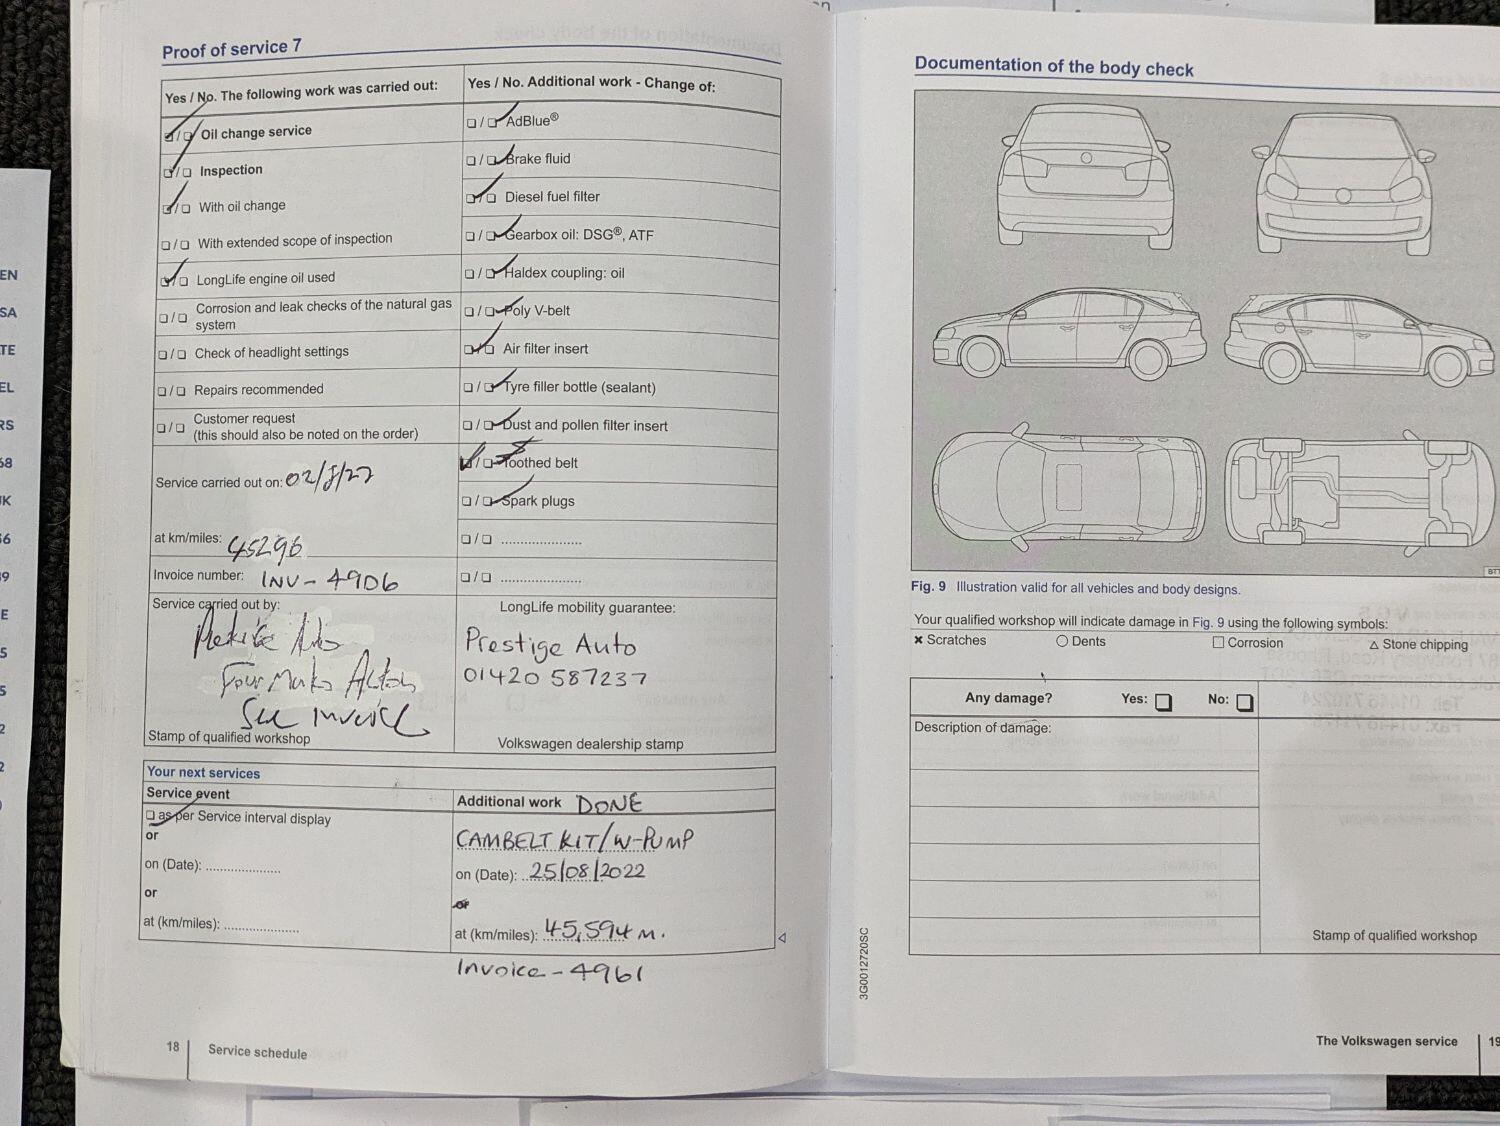 Proof of service 7
Yes / No. The following work was carried out:
❑ / ❑ Oil change service
❑ / ❑ Inspection
❑ / ❑ With oil change
❑ / ❑ With extended scope of inspection
❑ / ❑ LongLife engine oil used
❑ / ❑ Corrosion and leak checks of the natural gas
system
❑ / ❑ Check of headlight settings
❑ / ❑ Repairs recommended
❑ / ❑ Customer request
(this should also be noted on the order)
Service carried out on:
at km/miles: 45296
Invoice number: INV - 4906
Service carried out by:
See Invoice
Stamp of qualified workshop
Yes / No. Additional work - Change of:
❑ / ❑ AdBlue®
❑ / ❑ Brake fluid
❑ / ❑ Diesel fuel filter
❑ / ❑ Gearbox oil: DSG®, ATF
❑ / ❑ Haldex coupling: oil
❑ / ❑ Poly V-belt
❑ / ❑ Air filter insert
❑ / ❑ Tyre filler bottle (sealant)
❑ / ❑ Dust and pollen filter insert
❑ / ❑ Toothed belt
❑ / ❑ Spark plugs
❑ / ❑ .....................
❑ / ❑ .....................
LongLife mobility guarantee:
Prestige Auto
01420 587237
Volkswagen dealership stamp
Your next services
Service event
❑ as per Service interval display
or
on (Date): ....................
or
at (km/miles): ....................
Additional work DONE
CAMBELT KIT/W-PUMP
on (Date): 25/08/2022
or
at (km/miles): 45,594 m.
Invoice - 4961
18
Service schedule
Documentation of the body check
Fig. 9 Illustration valid for all vehicles and body designs.
Your qualified workshop will indicate damage in Fig. 9 using the following symbols:
✖ Scratches ○ Dents □ Corrosion △ Stone chipping
Any damage? Yes: ❑ No: ❑
Description of damage:
Stamp of qualified workshop
3G0012720SC
The Volkswagen service
19
EN
SA
TE
EL
RS
68